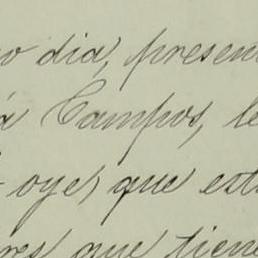 o dia, presen
a Campos, le
oye, que est
res que tiene